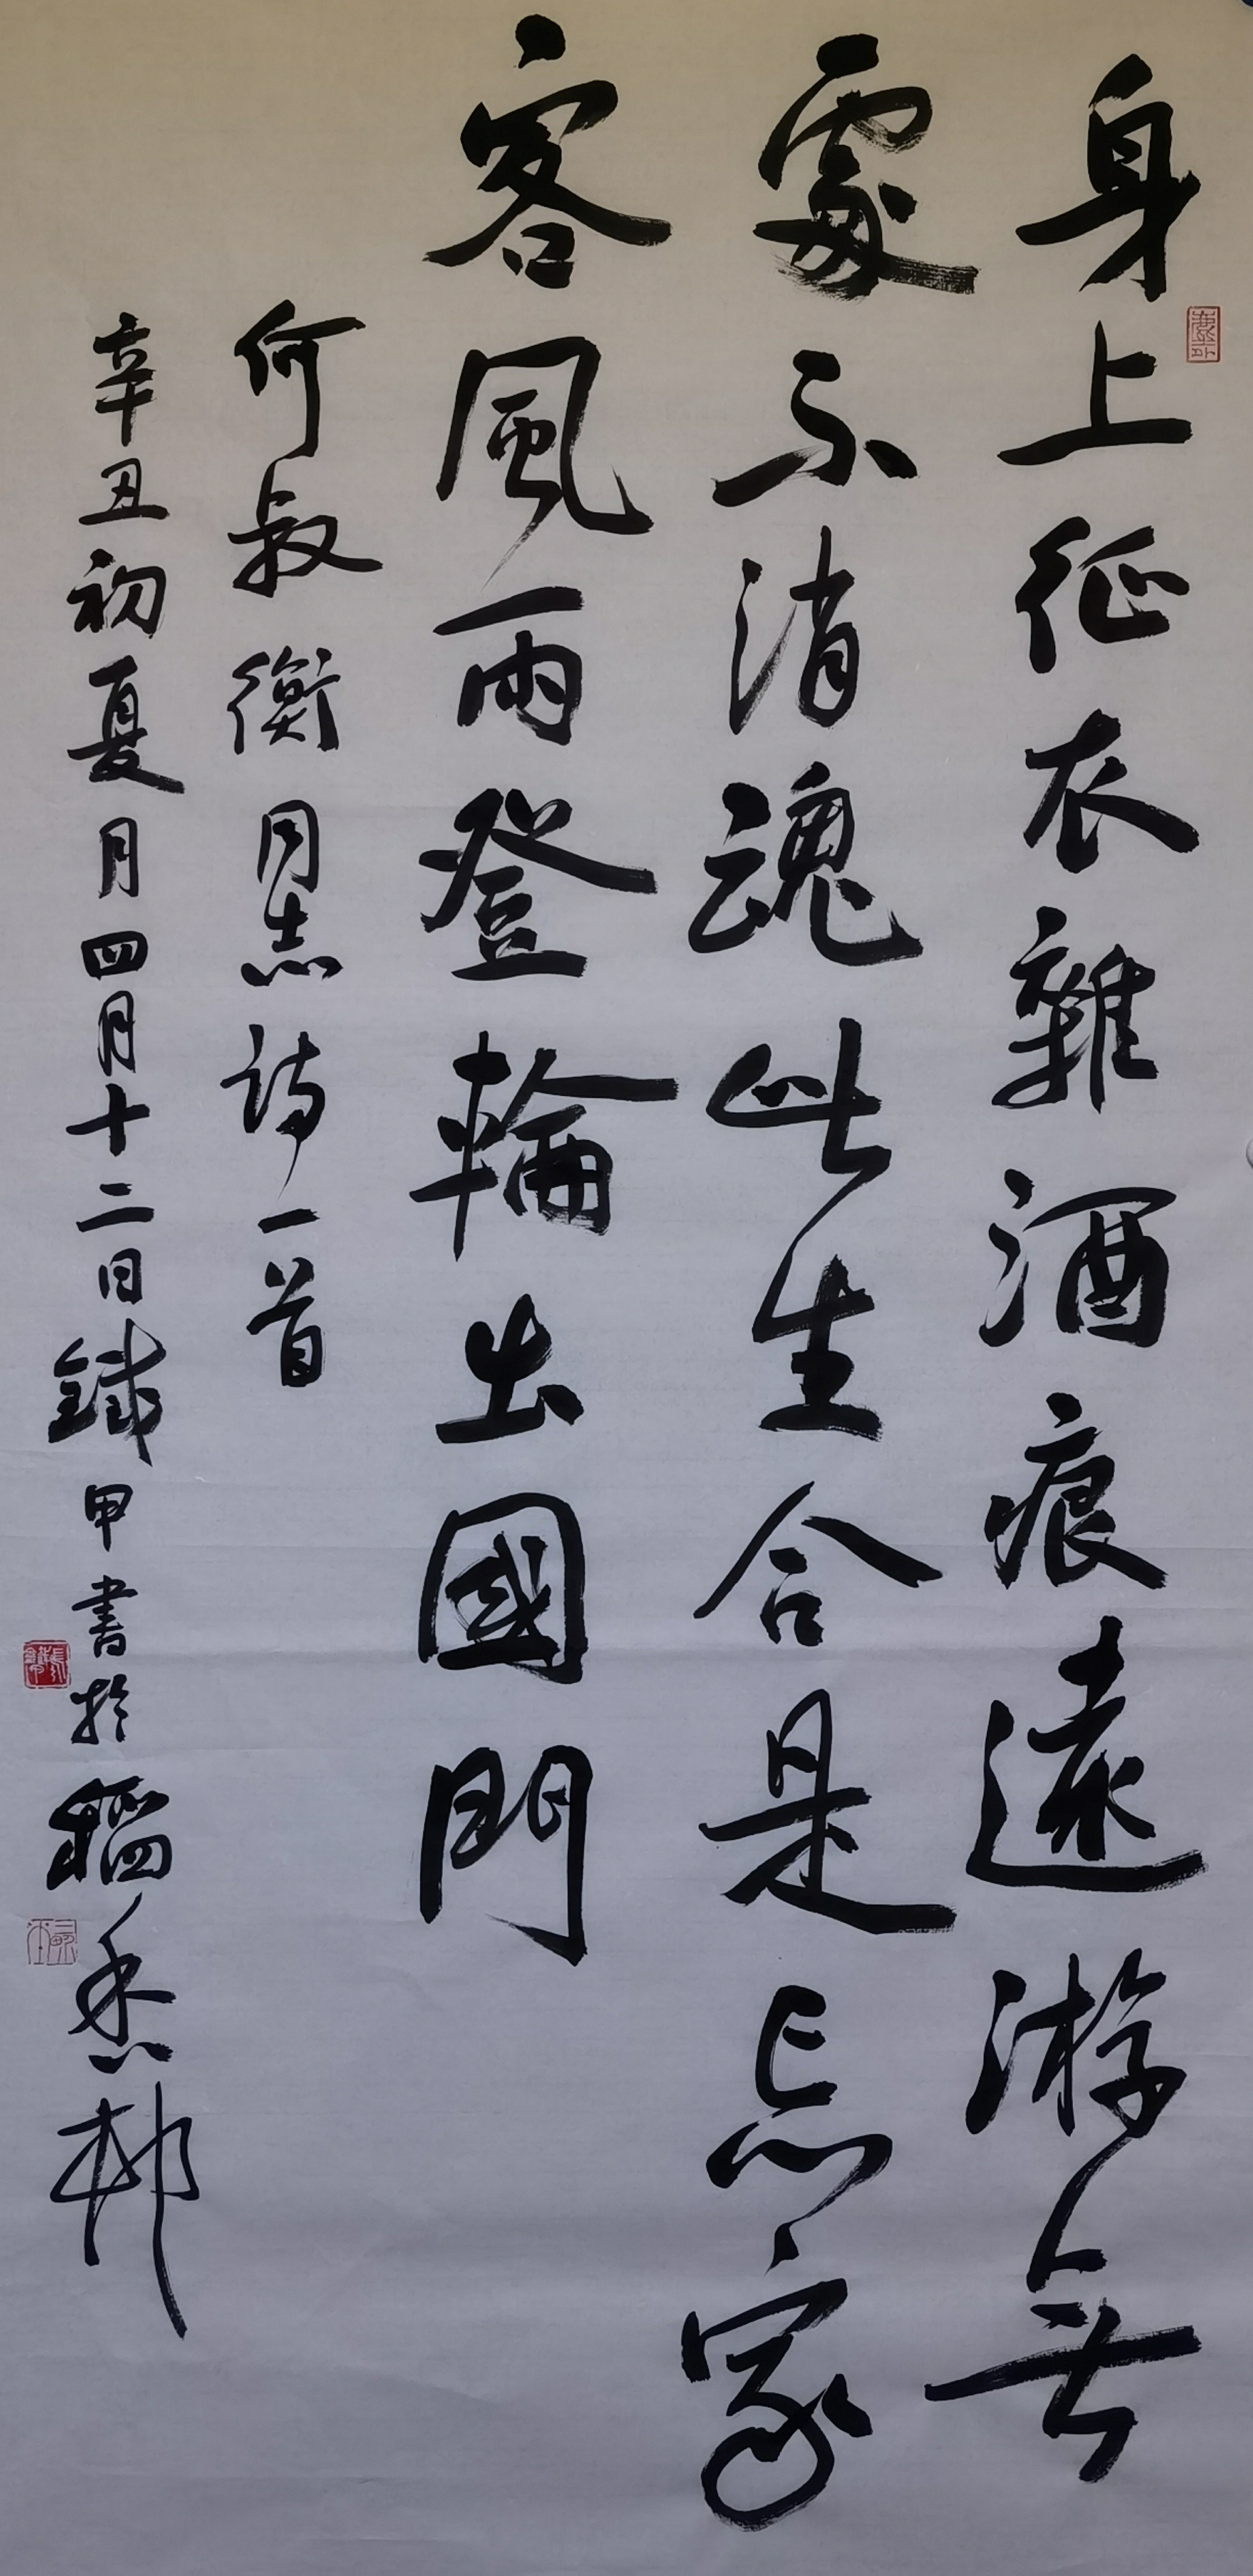 身上征衣雜酒痕遠游無
處不消魂此生合是忘家
客風雨登輪出國門
何叔衡同志詩一首
辛丑初夏月四月十二日鐵甲書於稻香村